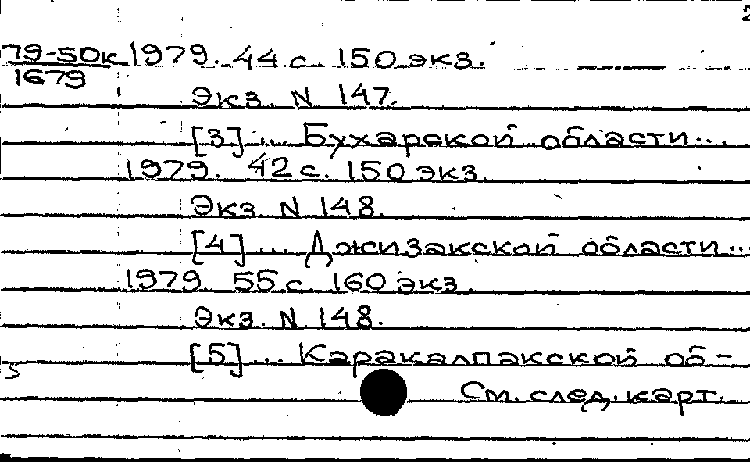 2
79-50к 1979. 44 с. 150 экз.
1679
Экз. N 147.
[3] ... Бухарской области...
1979. 42 с. 150 экз.
Экз. N 148.
[4] ... Джизакской области...
1979. 55 с. 160 экз.
Экз. N 148.
[5] ... Каракалпакской об-
5
См. след. карт.